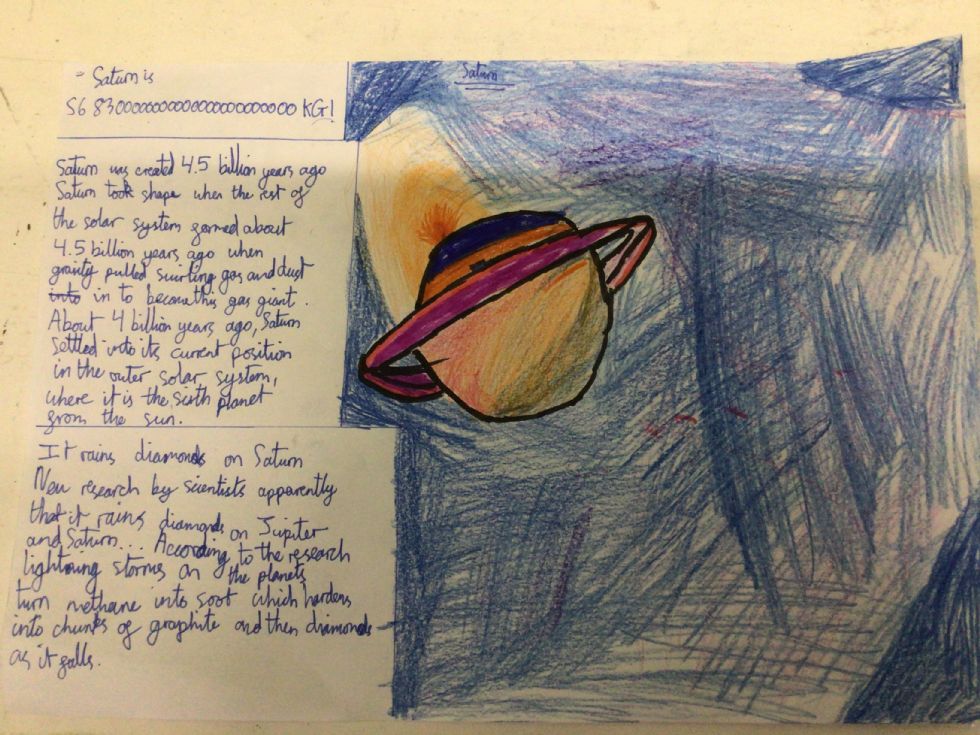 Saturn is
568300000000000000000000000 KG!
Saturn
Saturn was created 4.5 billion years ago
Saturn took shape when the rest of
the solar system formed about
4.5 billion years ago when
gravity pulled swirling gas and dust
into in to become this gas giant.
About 4 billion years ago, Saturn
settled into its current position
in the outer solar system,
where it is the sixth planet
from the sun.
It rains diamonds on Saturn
New research by scientists apparently
that it rains diamonds on Jupiter
and Saturn... According to the research
lightning storms on the planets
turn methane into soot which hardens
into chunks of graphite and then diamonds
as it falls.